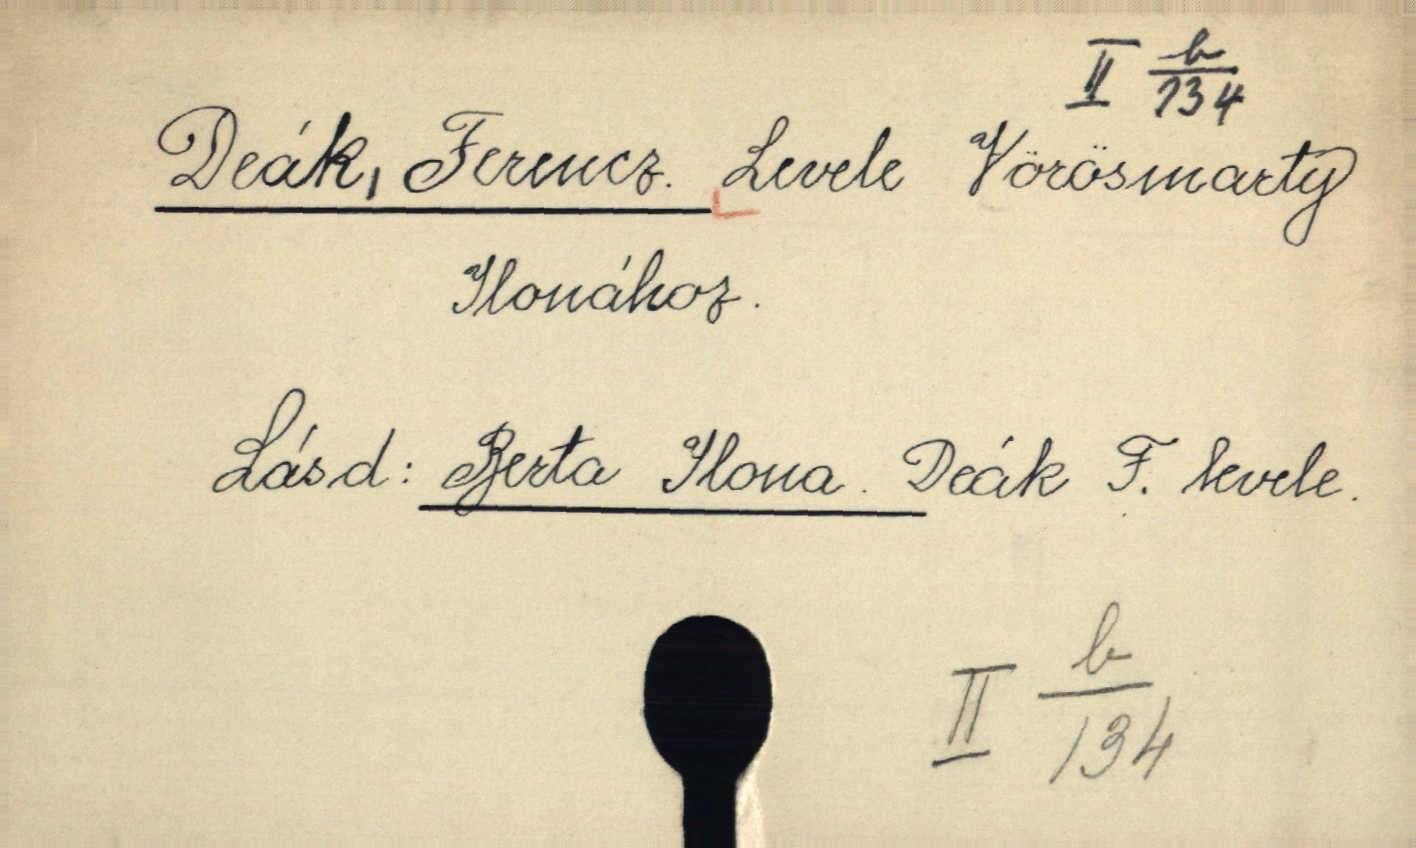 II b/134
Deák, Ferencz. Levele Vörösmarty
Ilonához.
Lásd: Berta Ilona. Deák F. levele.
II b/134